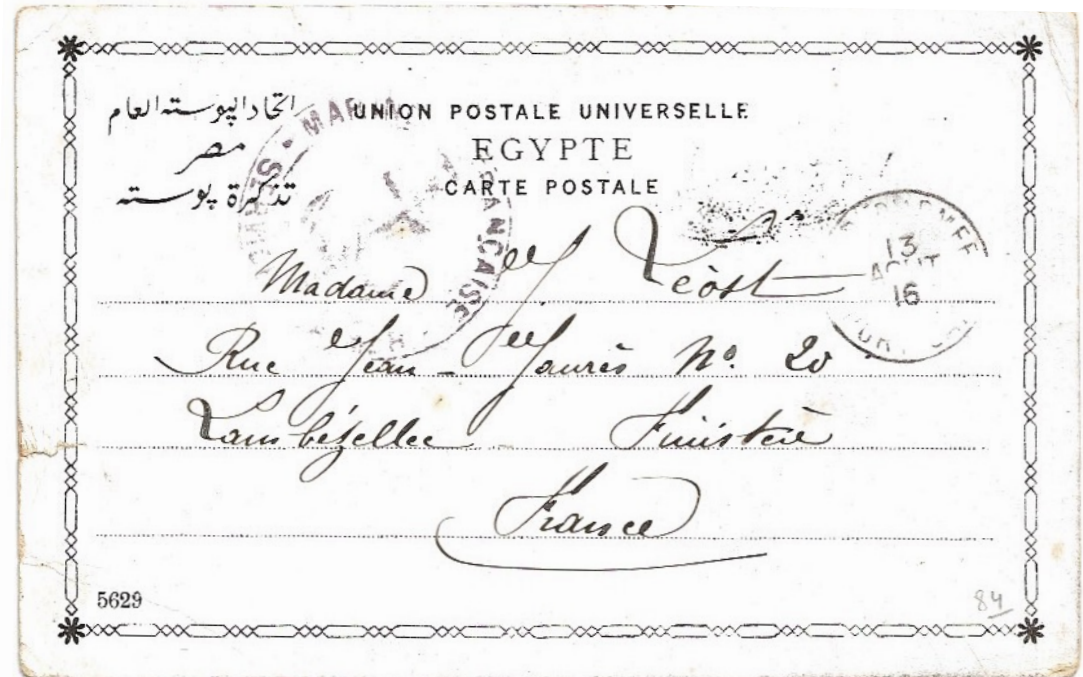 اتحاد البوسته العام
مصر
تذكرة بوسته
UNION POSTALE UNIVERSELLE
EGYPTE
CARTE POSTALE
MAR
FRANÇAISE
13
AOUT
16
Madame Léost
Rue Jean-Jaurès No. 20
Lambézellec Finistère
France
5629
84